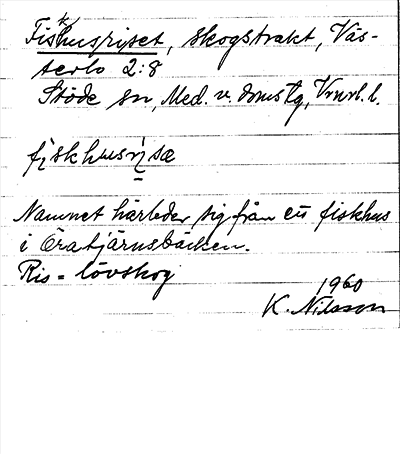 Fiskhusriset, skogstrakt, Väs-
terlo 2:8
Stöde sn, Med. v. domstg, Vnrl. l.
fi̯skhusri̯sæ
Namnet härleder sig från ett fiskhus
i Öratjärnsbäcken.
Ris = lövskog
1960
K. Nilsson